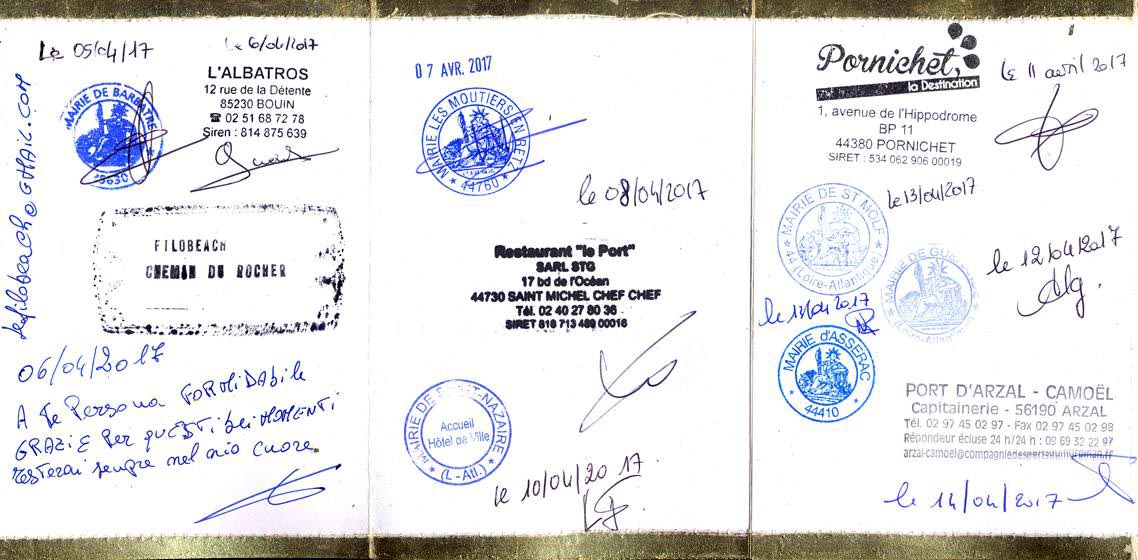 Le 05/04/17
MAIRIE DE BARBATRE
Le 6/04/2017
L'ALBATROS
12 rue de la Détente
85230 BOUIN
☎ 02 51 68 72 78
Siren : 814 875 639
lefilobeach@GMAIL.COM
FILOBEACH
CHEMIN DU ROCHER
06/04/2017
A Te Persona FORMIDABILE
GRAZIE Per quESTI bei MOMENTI
resterai sempre nel mio cuore
07 AVR. 2017
MAIRIE LES MOUTIERS EN RETZ
44760
le 08/04/2017
Restaurant "le Port"
SARL STG
17 bd de l'Océan
44730 SAINT MICHEL CHEF CHEF
Tél. 02 40 27 80 36
SIRET 818 713 489 00016
MAIRIE DE SAINT-NAZAIRE
Accueil
Hôtel de Ville
(L-Atl.)
le 10/04/2017
Pornichet,
la Destination
1, avenue de l'Hippodrome
BP 11
44380 PORNICHET
SIRET : 534 062 906 00019
le 11 avril 2017
MAIRIE DE ST MOLF
44 (Loire-Atlantique)
le 13/04/2017
MAIRIE DE
le 12/04/2017
le 13/04 2017
MAIRIE d'ASSERAC
44410
PORT D'ARZAL - CAMOËL
Capitainerie - 56190 ARZAL
Tél. 02 97 45 02 97 - Fax 02 97 45 02 98
Répondeur écluse 24 h/24 h : 09 69 32 22 97
le 14/04/2017